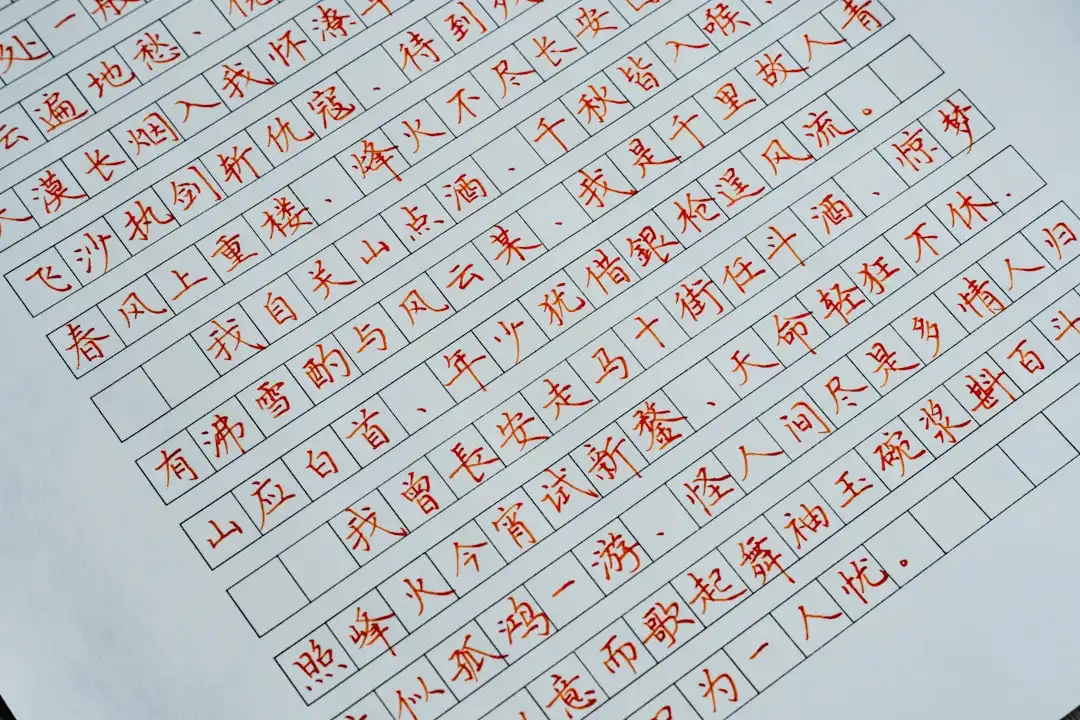 处一般
云遍地愁.
大漠长烟入我怀潦
飞沙执剑斩仇寇.待到
春风上重楼、烽火不尽长安
我自关山点酒.千秋皆入喉.
有沸雪酌与风云某、我是千里故人青
山应白首、年少犹借銀枪逞风流。
我曾長安走马十街任斗酒、惊梦
照烽火今宵试新鍪、天命轻狂不休.
似孤鸿一游.怪人间尽是多情人归
意而歌起舞袖玉碗浆斟百斗
为一人忧。